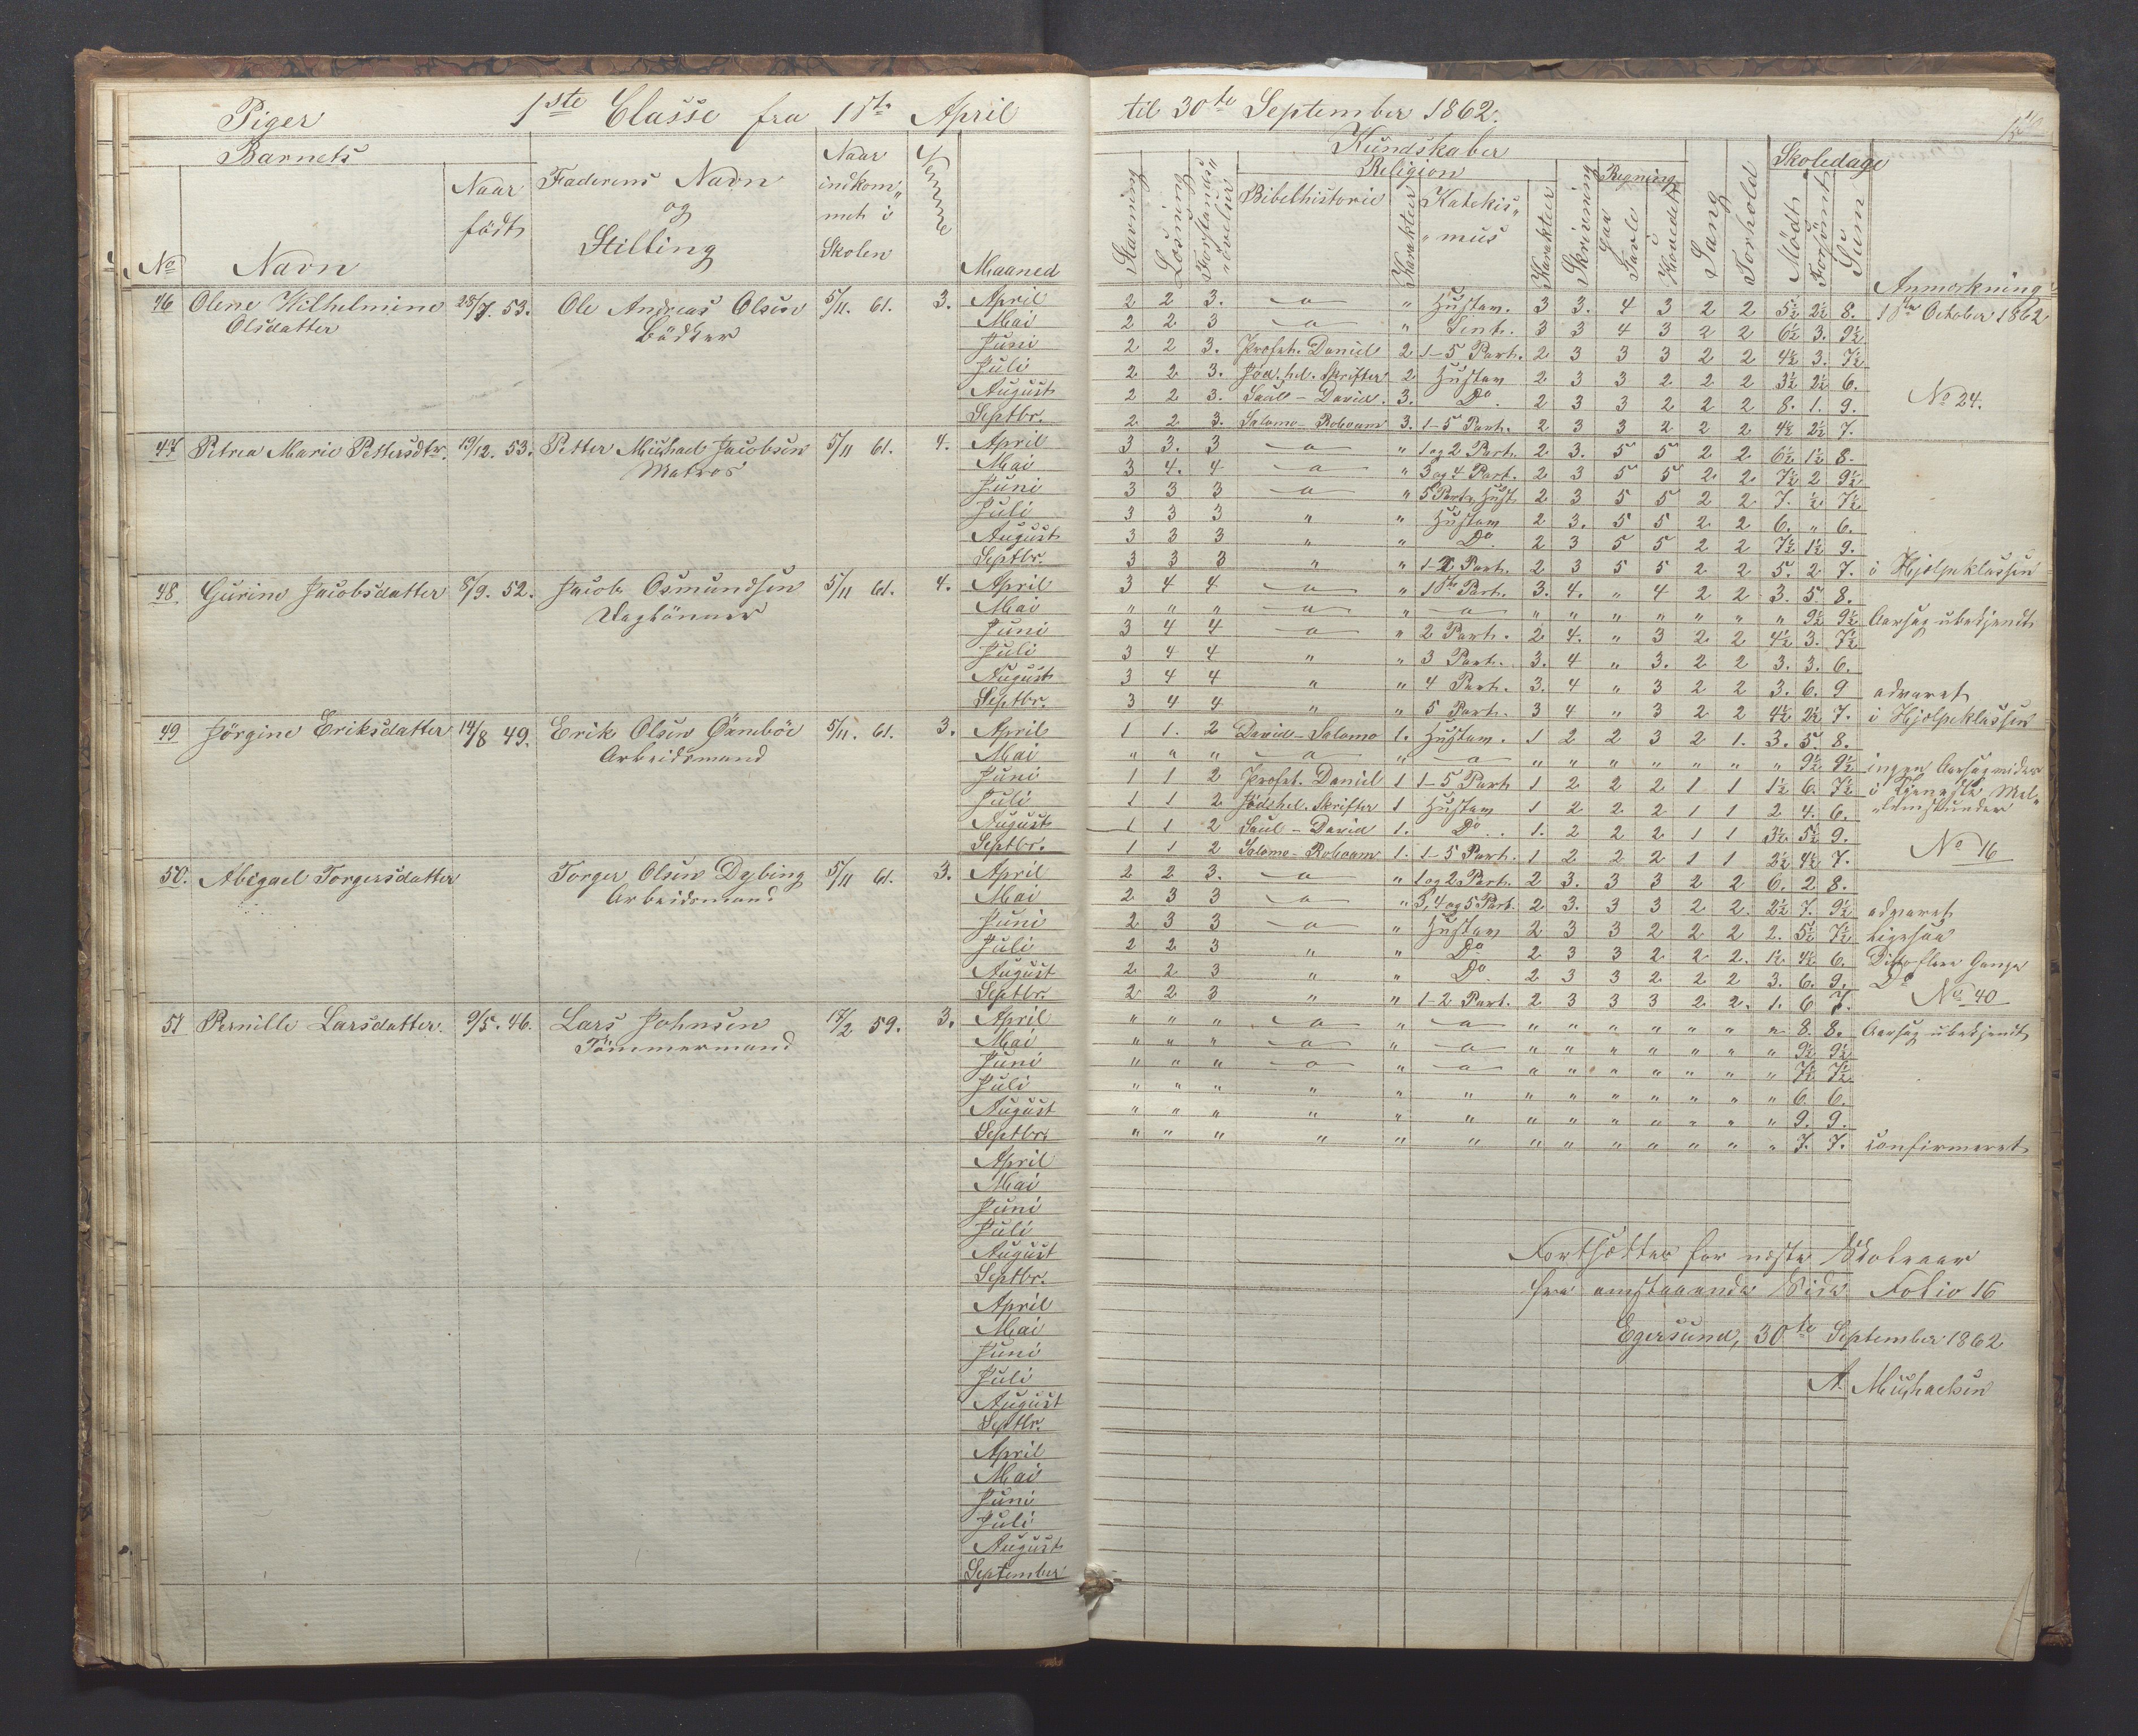 Piger 1ste Classe fra 1ste April til 30te September 1862.
Barnets
No Navn Naar födt Faderens Navn og Stilling Naar indkommet i Skolen Evnerne Maaned
Kundskaber
Religion
Regning
Skoledage
Stavning Læsning Forstands„övelser Bibelhistorie Karakter Katekis„mus Karakter Skrivning Paa Tavle i Hovedet Sang Forhold Mödt Forsömt Sum Anmærkning
46 Olene Wilhelmine Olsdatter 28/7. 53. Ole Andreas Olsen Bödker 5/11. 61. 3.
April 2 2 3. -a- " Zustam. 3 3. 4 3 2 2 5½ 2½ 8. 1ste October 1862
Mai 2 2 3 -a- " Sent. 3 3 4 3 2 2 6½ 3. 9½
Juni 2 2 3. Profet. Daniel 2 1-5 Part. 2 3 3 3 2 2 4½ 3. 7½
Juli 2 2 3. Jød. hel. Skrifter 2 Zustam 2 3 3 2 2 2 3½ 2½ 6.
August 2 2 3. Saul - David. 3. Do. 2 3 3 2 2 2 8. 1. 9. No 24.
Septbr. 2 2 3. Salomo - Roboam 3. 1-5 Part. 2 3 3 2 2 2 4½ 2½ 7.
47 Petrea Marie Pettersdtr. 19/12. 53. Petter Michael Jacobsen Matros 5/11 61. 4.
April 3 3. 3 -a- " 1 og 2 Part. 2 3. 5 5 2 2 6½ 1½ 8.
Mai 3 4. 4 -a- " 3 og 4 Part. 2 3 5 5 2 2 7½ 2 9½
Juni 3 3 3 -a- " 5 Part. Zust. 2 3 5 5 2 2 7. ½ 7½
Juli 3 3 3 " " Zustam 2 3. 5 5 2 2 6. " 6.
August 3 3 3 " " Do. 2 3 5 5 2 2 7½ 1½ 9.
Septbr. 3 3 3 " " 1-2 Part. 2 3 5 5 2 2 5. 2 7. i Hjelpeklassen
48 Gurine Jacobsdatter 8/9. 52. Jacob Osmundsen Daglönner 5/11 61. 4.
April 3 4 4 -a- " 1ste Part. 3. 4. " 4 2 2 3. 5. 8.
Mai " " " -a- " -a- " " " " " " " 9½ 9½ Aarsag ubekjendt
Juni 3 4 4 -a- " 2 Part. 2 4. " 3 2 2 4½ 3. 7½
Juli 3 4 4 " " 3 Part. 3. 4 " 3. 2 2 3. 3. 6.
August 3 4 4 " " 4 Part. 3. 4 " 3 2 2 3. 6. 9 advaret
Septbr. 3 4 4 " " 5 Part. 3 4 " 3 2 2 4½ 2½ 7. i Hjelpeklassen
49 Jörgine Eriksdatter 14/8 49. Erik Olsen Arbeidsmand 5/11. 61. 3.
April 1 1. 2 David - Salomo 1. Zustam. 1 2 2 3 2 1. 3. 5. 8.
Mai " " " -a- " -a- " " " " " " " 9½ 9½ ingen Aarsag
Juni 1 1 2 Profet. Daniel 1 1-5 Part 1 2 2 2 1 1 1½ 6. 7½ i
Juli 1 1 2 Jödshel. Skrifter 1 Zustam 1 2 2 2 1 1 2 4. 6.
August 1 1 2 Saul - David 1. Do. 1. 2 2 2 1 1 3½ 5½ 9.
Septbr. 1 1 2 Salomo - Roboam 1. 1-5 Part. 1 2 2 2 1 1 2½ 4½ 7. No 16
50. Abigael Torgersdatter Torger Olsen Dybing Arbeidsmand 5/11 61. 3.
April 2 2 3. -a- " 1 og 2 Part. 2 3. 3 3 2 2 6. 2 8.
Mai 2 3 3 -a- " 3, 4 og 5 Part. 2 3. 3 3 2 2. 2½ 7. 9½ advaret
Juni 2 3 3 -a- " Zustam 2 3 3 2 2 2 2. 5½ 7½ Ligesaa
Juli 2 2 3 " " Do 2 3 3 2 2 2. 1½ 4½ 6. Ditto flere Gange
August 2 2 3 " " Do. 2 3 3 2 2 2 3. 6. 9. Do
Septbr. 2 2 3 " " 1-2 Part. 2 3 3 3 2 2. 1. 6 7. No 40
51 Pernille Larsdatter. 9/5. 46. Lars Johnsen Tömmermand 17/2 59. 3.
April " " " -a- " -a- " " " " " " " 8. 8. Aarsag ubekjendt
Mai " " " -a- " -a- " " " " " " " 9½ 9½
Juni " " " -a- " -a- " " " " " " " 7½ 7½
Juli " " " " " " " " " " " " " 6. 6.
August " " " " " " " " " " " " " 9. 9.
Septbr. " " " " " " " " " " " " " 7. 7. confirmeret
April
Mai
Juni
Juli
August
Septbr.
April
Mai
Juni
Juli
August
Septbr.
April
Mai
Juni
Juli
August
September
Fortsættes for næste Skoleaar
fra omstaaende Side Folio 16
Egersund, 30te September 1862
A. Michaelsen